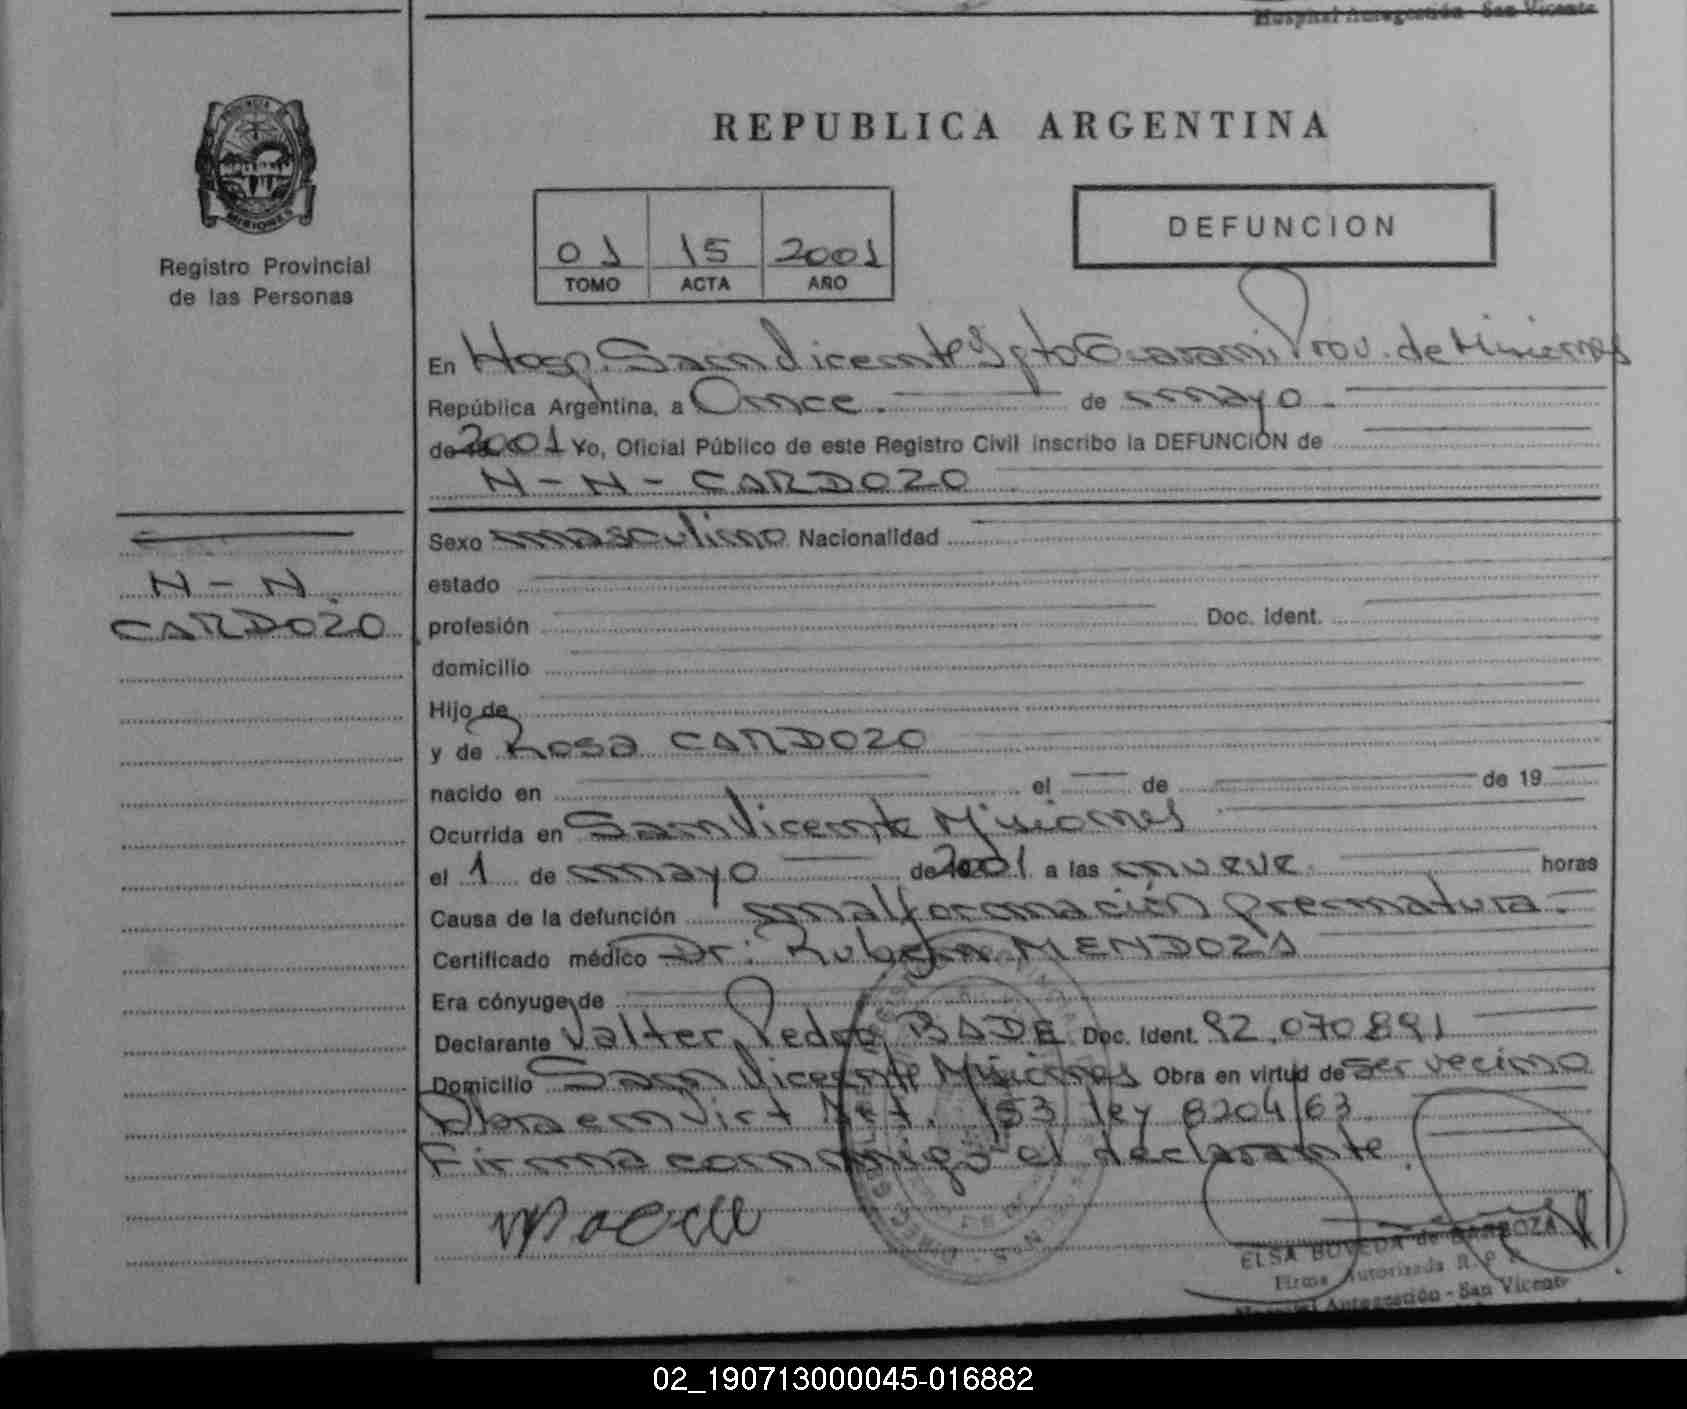 Hospital Autogestión - San Vicente
PROVINCIA DE
MISIONES
Registro Provincial
de las Personas
REPUBLICA ARGENTINA
01 15 2001
TOMO ACTA AÑO
DEFUNCION
En Hosp. San Vicente Dpto Guarani Prov. de Misiones
República Argentina, a Once. de mayo.
de 2001 Yo, Oficial Público de este Registro Civil inscribo la DEFUNCION de
N-N-CARDOZO
N-N.
CARDOZO
Sexo masculino Nacionalidad
estado
profesión Doc. Ident.
domicilio
Hijo de
y de Rosa CARDOZO
nacido en el de de 19
Ocurrida en San Vicente Misiones
el 1 de mayo de 2001 a las nueve horas
Causa de la defunción malformación prematura.
Certificado médico Dr: Ruben MENDOZA
Era cónyuge de
Declarante Valter Pedro BADE Doc. Ident. 92.070.891
Domicilio San Vicente Misiones Obra en virtud de ser vecino
Obra en Virt Art. 153 ley 8204/63
Firma conmigo el declarante.
ELSA BOVEDA de BARBOZA
Firma Autorizada R. P. P.
Hospital Autogestión - San Vicente
02_190713000045-016882